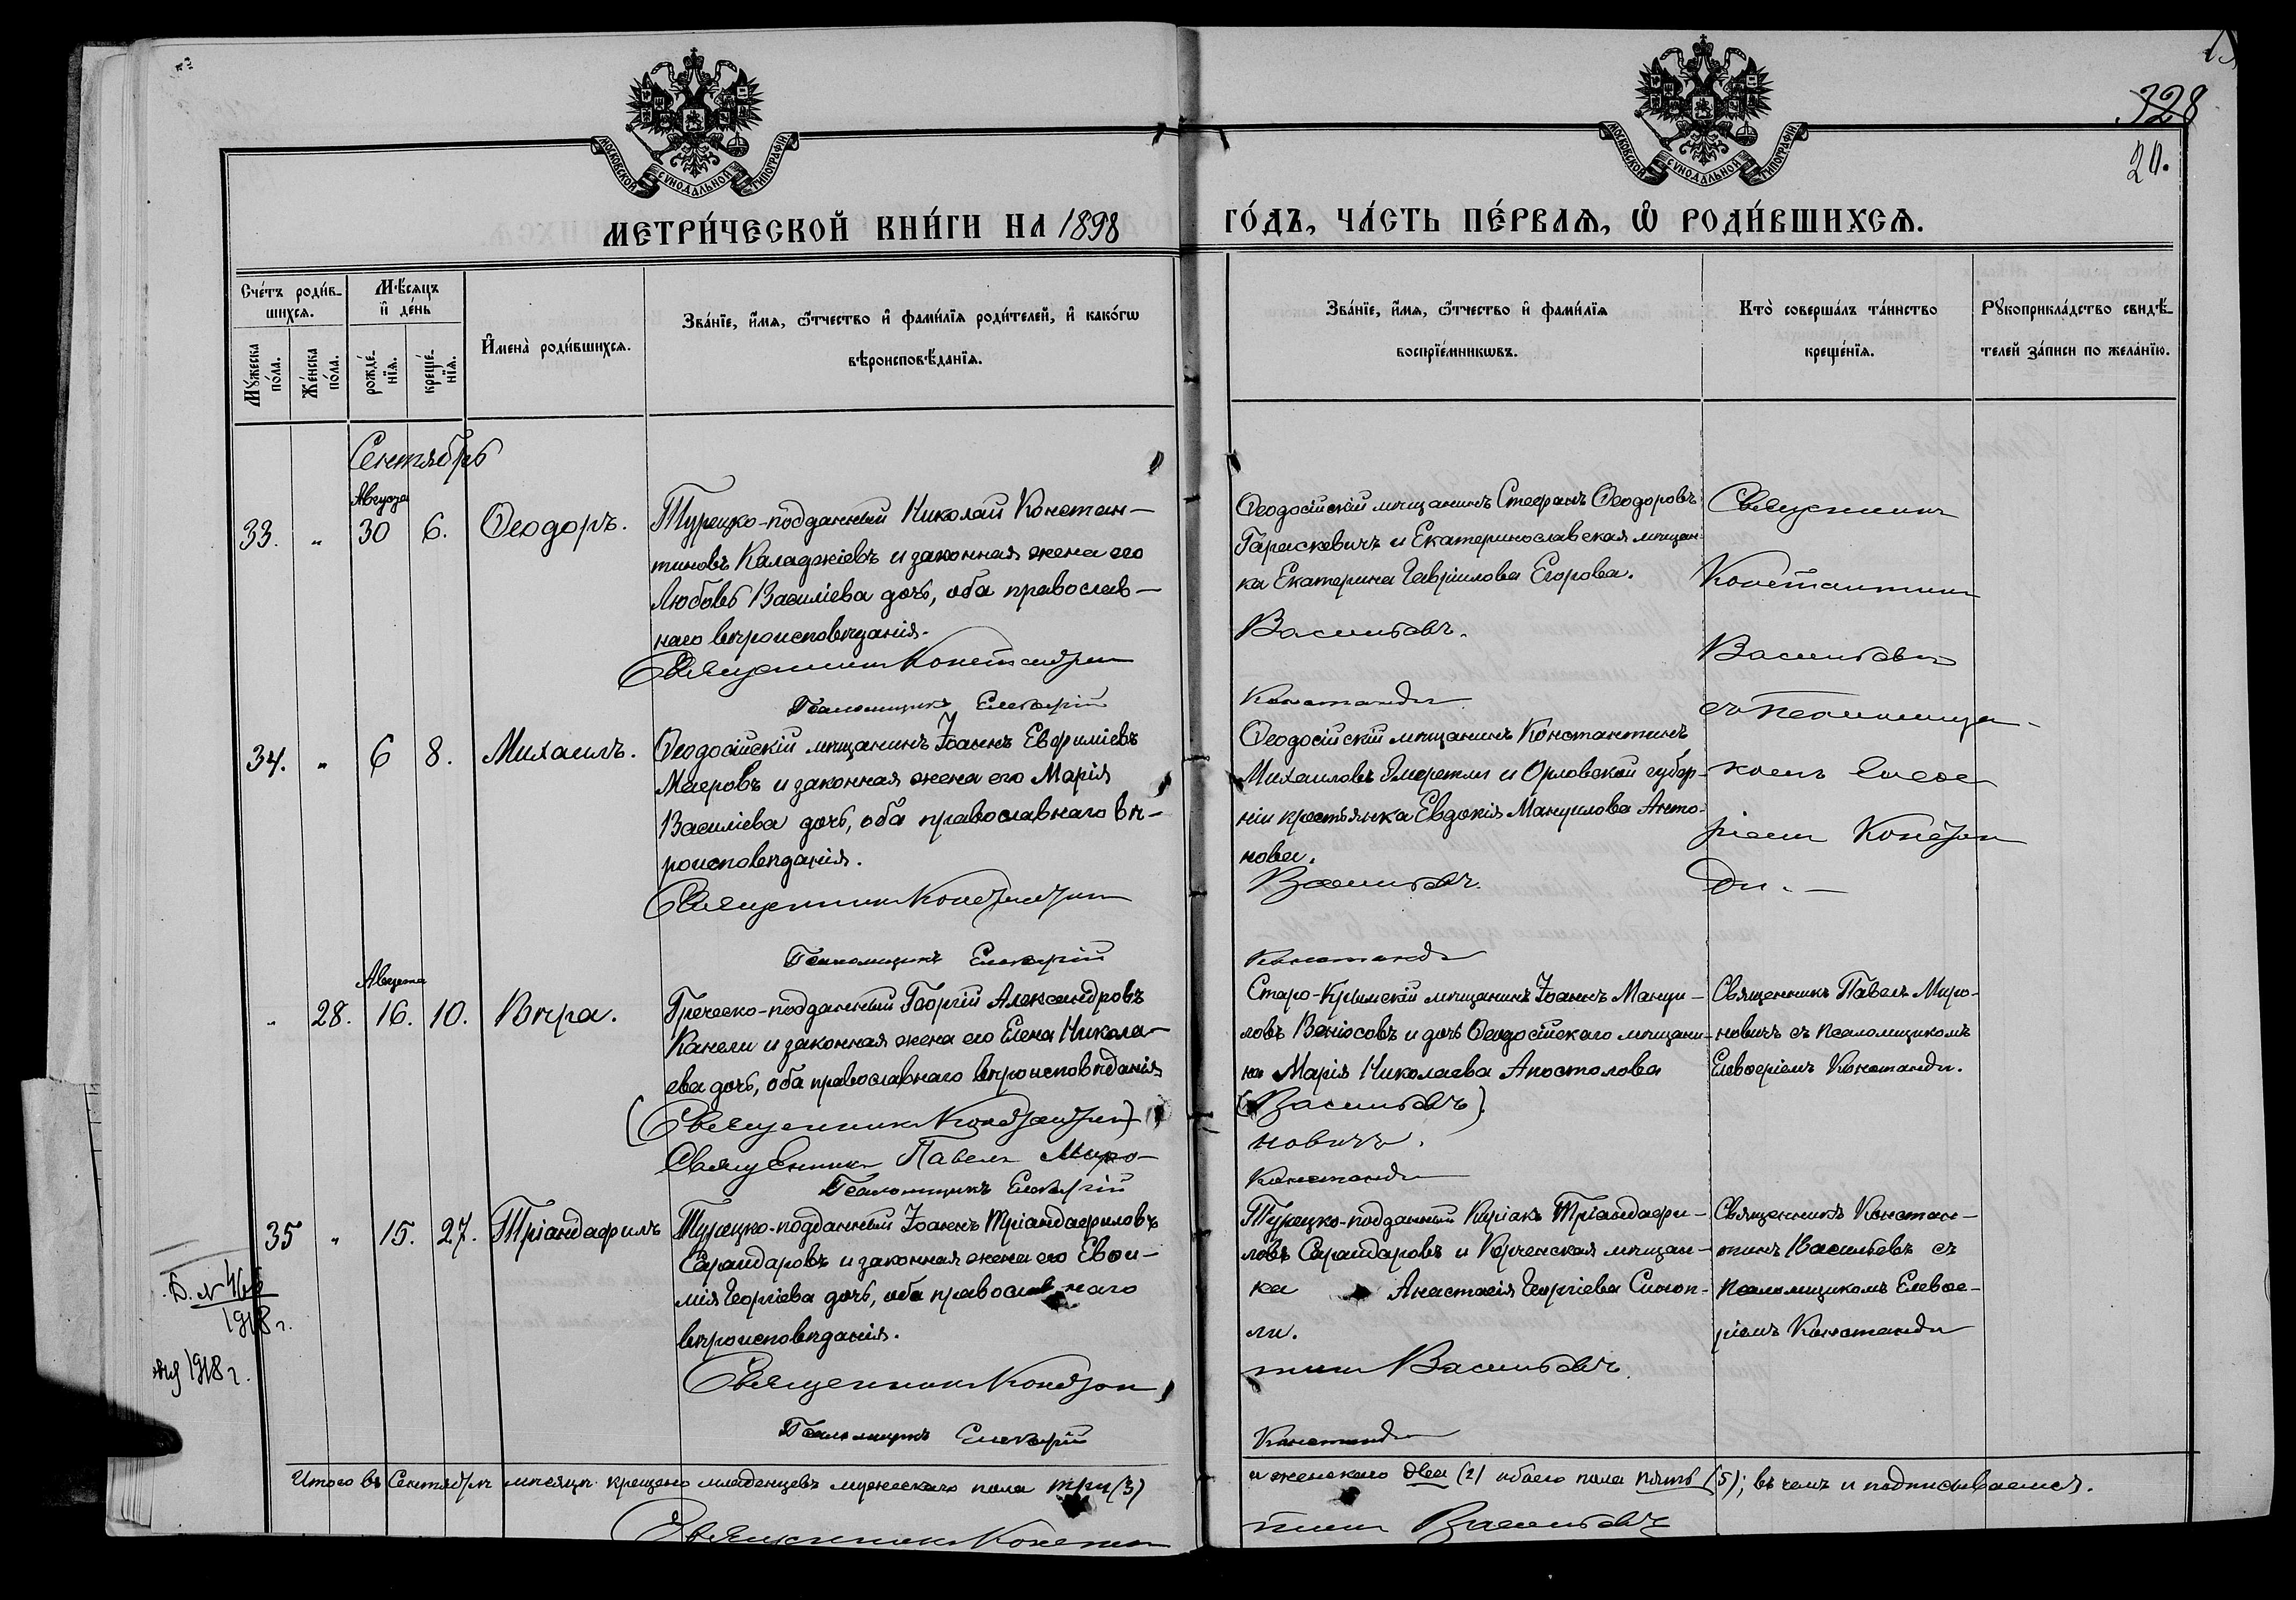 МОСКОВСКОЙ СѴНОДАЛЬНОЙ ТИПОГРАФІИ
МОСКОВСКОЙ СѴНОДАЛЬНОЙ ТИПОГРАФІИ
328
20.
МЕТРИ́ЧЕСКОЙ КНИ́ГИ НА 1898
ГО́ДЪ, ЧА́СТЬ ПЕ́РВАѦ, Ѡ҆ РОДИ́ВШИХСѦ.
Сче́тъ роди́в-
шихсѧ.
Мѣ́сѧцъ
и҆ де́нь
Мꙋ́жеска
по́ла.
Же́нска
по́ла.
рожде́-
нїѧ.
креще́-
нїѧ.
И҆мена̀ роди́вшихсѧ.
Зва́нїе, и҆́мѧ, ѻ҆́тчество и҆ фами́лїѧ роди́телей, и҆ како́гѡ
вѣроисповѣ́данїѧ.
Зва́нїе, и҆́мѧ, ѻ҆́тчество и҆ фами́лїѧ
воспрїе́мникѡвъ.
Кто̀ соверша́лъ та́инство
креще́нїѧ.
Рꙋкоприкла́дство свидѣ́-
телей за́писи по жела́нїю.
Сентябрь
Августа
33. " 30 6. Ѳеодоръ.
Турецко-подданный Николай Констан-
тиновъ Каладжіевъ и законная жена его
Любовь Василіева дочь, оба православ-
наго вѣроисповѣданія.
Священникъ Константинъ
Псаломщикъ Елевѳерій
Ѳеодосійскій мѣщанинъ Стефанъ Ѳеодоровъ
Гараскевичъ и Екатеринославская мѣщан-
ка Екатерина Гавріилова Егорова.
Васильевъ.
Констанди
Священникъ
Константинъ
Васильевъ
съ псаломщи-
комъ Елевѳе
ріемъ Констан
ди. —
34. " 6 8. Михаилъ.
Ѳеодосійскій мѣщанинъ Іоаннъ Евфиміевъ
Маеровъ и законная жена его Марія
Василіева дочь, оба православнаго вѣ-
роисповѣданія.
Священникъ Константинъ
Псаломщикъ Елевѳерій
Ѳеодосійскій мѣщанинъ Константинъ
Михаиловъ и Орловской губер-
ніи крестьянка Евдокія Мануилова Анто-
нова.
Васильевъ.
Констанди
Августа
" 28. 16. 10. Вѣра.
Греческо-подданный Георгій Александровъ
Канели и законная жена его Елена Никола-
ева дочь, оба православнаго вѣроисповѣданія
(Священникъ Константинъ)
Священникъ Павелъ Миро-
Псаломщикъ Елевѳерій
Старо-Крымскій мѣщанинъ Іоаннъ Мануи-
ловъ Веніосовъ и дочь Ѳеодосійскаго мѣщани-
на Марія Николаева Апостолова
(Васильевъ).
новичъ.
Констанди
Священникъ Павелъ Миро-
новичъ съ псаломщикомъ
Елевѳеріемъ Констанди.
35 " 15. 27. Тріандафилъ
Турецко-подданный Іоаннъ Тріандафиловъ
Сарандаровъ и законная жена его Евѳи-
мія Георгіева дочь, оба православнаго
вѣроисповѣданія.
Священникъ Констан
Псаломщикъ Елевѳерій
Турецко-подданный Киріакъ Тріандафи-
ловъ Сарандаровъ и Керченская мѣщан-
ка Анастасія Георгіева Синоп-
ли.
тинъ Васильевъ.
Констанди
Священникъ Констан-
тинъ Васильевъ съ
псаломщикомъ Елевѳе-
ріемъ Констанди
1918 г.
1918 г.
Итого въ Сентябрѣ мѣсяцѣ крещено младенцевъ мужескаго пола три (3)
и женскаго два (2) обоего пола пять (5); въ чемъ и подписываемся.
Священникъ Констан
тинъ Васильевъ